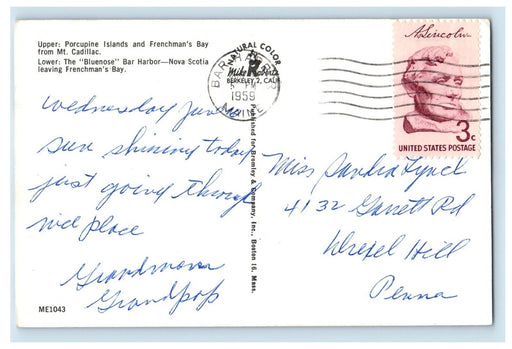 Upper: Porcupine Islands and Frenchman's Bay
from Mt. Cadillac.
Lower: The "Bluenose" Bar Harbor—Nova Scotia
leaving Frenchman's Bay.
NATURAL COLOR
Mike Roberts
BERKELEY 2, CALIF.
BAR HARBOR
PM
1959
MAINE
A. Lincoln
3c
UNITED STATES POSTAGE
Wednesday June
sun shining today
just going through
nice place
Grandmom
Grandpop
Published for Bromley & Company, Inc., Boston 16, Mass.
Miss Sandra Lynch
4132 Garrett Rd
Drexel Hill
Penna
ME1043